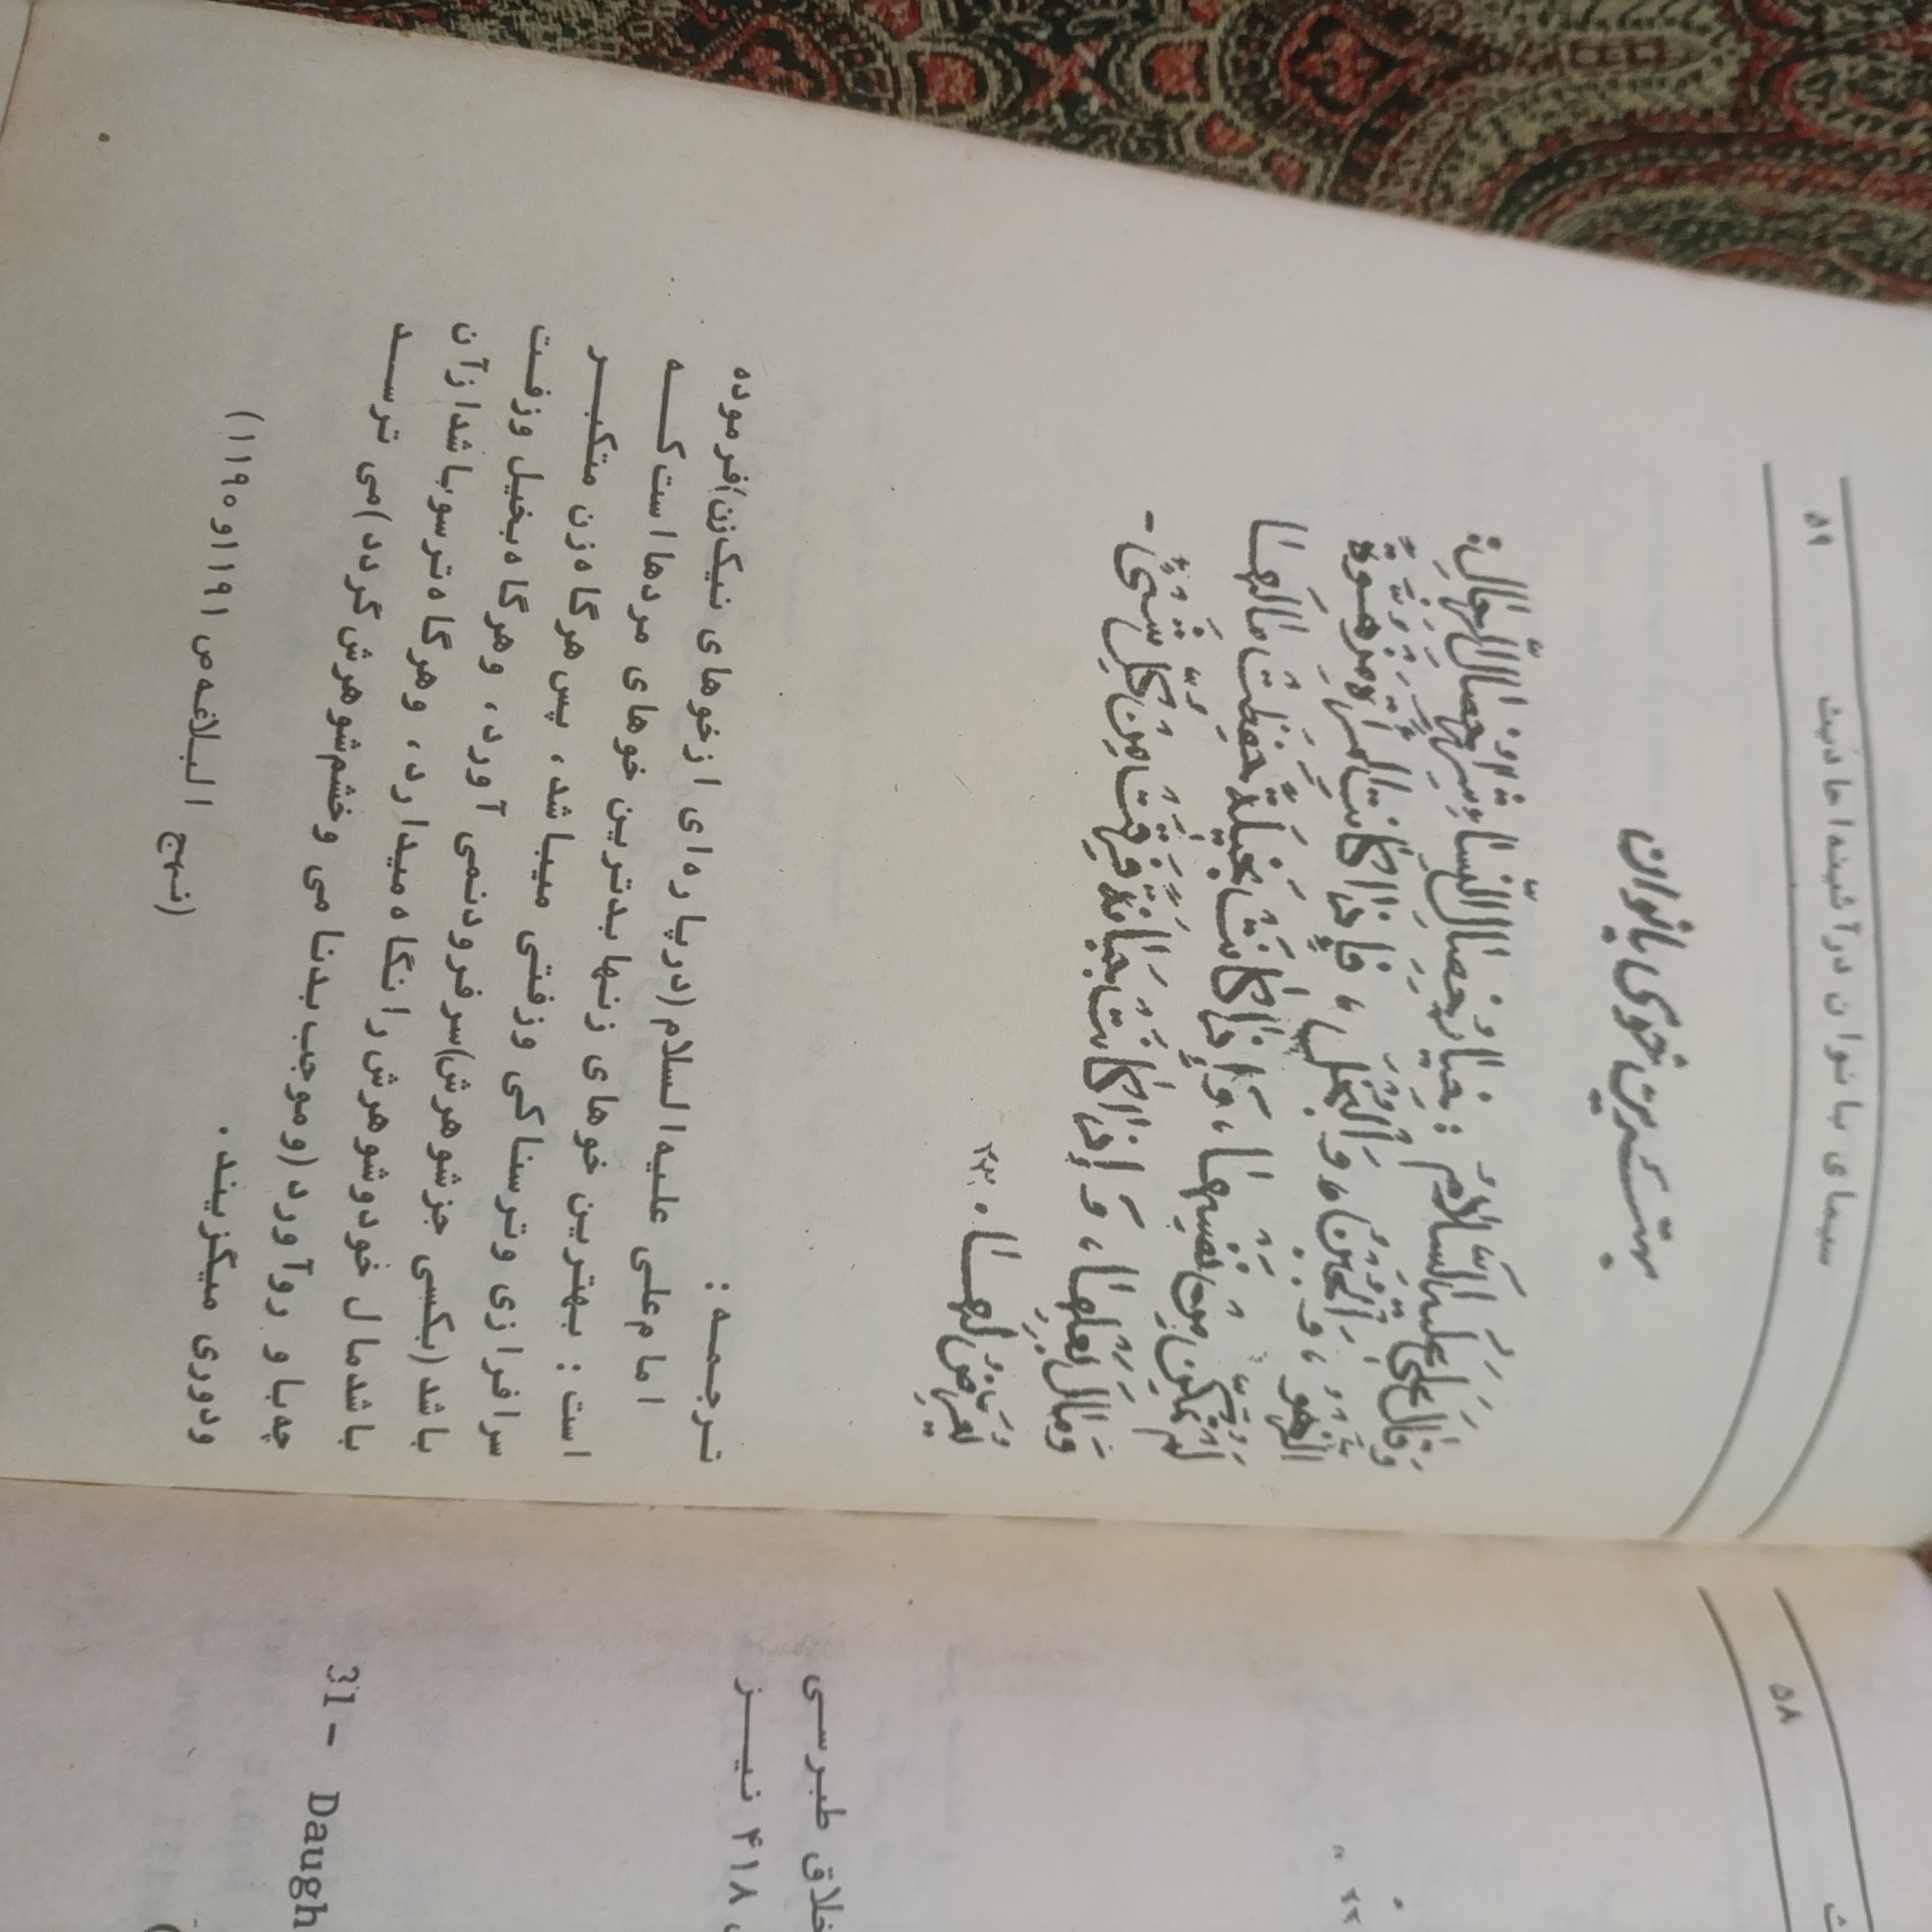 سیمای بانوان در آئینه احادیث ۵۹
بهترین خوی بانوان
وَقَالَ عَلِیٌّ عَلَیْهِ السَّلَامُ : خِیَارُ خِصَالِ النِّسَاءِ شِرَارُ خِصَالِ الرِّجَالِ:
الزَّهْوُ، وَالْجُبْنُ، وَالْبُخْلُ، فَإِذَا كَانَتِ الْمَرْأَةُ مَزْهُوَّةً
لَمْ تُمَكِّنْ مِنْ نَفْسِهَا، وَإِذَا كَانَتْ بَخِیلَةً حَفِظَتْ مَالَهَا
وَمَالَ بَعْلِهَا، وَإِذَا كَانَتْ جَبَانَةً فَرِقَتْ مِنْ كُلِّ شَیْءٍ -
یَعْرِضُ لَهَا .
ترجمه :
امام علی علیه السلام (در پاره‌ای از خوهای نیک زن) فرموده
است : بهترین خوهای زنها بدترین خوهای مردها است که
سرافرازی و ترسناکی و زفتی میباشد، پس هرگاه زن متکبر
باشد (بکسی جز شوهرش) سر فرود نمی آورد، و هرگاه بخیل و زفت
باشد مال خود و شوهرش را نگاه میدارد، و هرگاه ترسو باشد از آن
چه باو رو آورد (و موجب بدنامی و خشم شوهرش گردد) می ترسد
و دوری میگزیند .
(نهج البلاغه ص ۱۱۹۱ و ۱۱۹۰)
۵۸
خلاق طبرسی
۴۱۸ نیز
31- Daugh